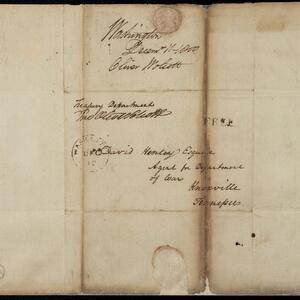 Washington
Decemr 11 1800
Oliver Wolcott
Treasury Department
FREE
David Henley Esquire
Agent for Department
of War
Knoxville
Tennessee